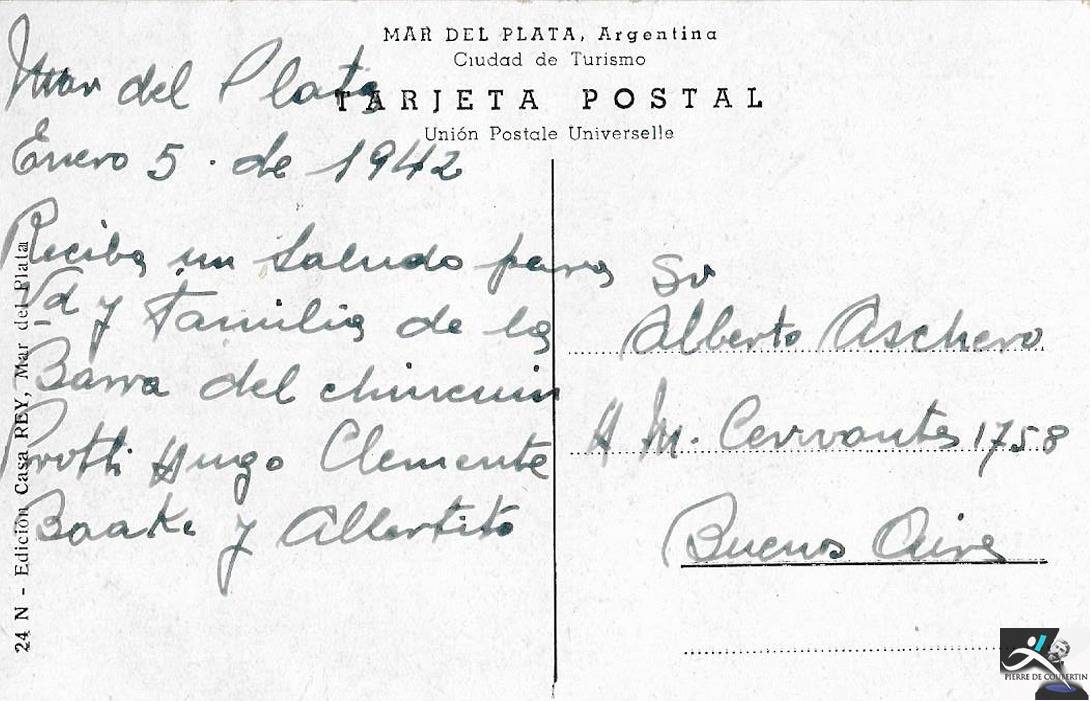 MAR DEL PLATA, Argentina
Ciudad de Turismo
TARJETA POSTAL
Unión Postale Universelle
Mar del Plata
Enero 5 . de 1942
Reciba un saludo para
Vd y Familia de la
Barra del
Hugo Clemente
y Albertito
Sr
Alberto Aschero
H M. Cervantes 1758
Buenos Aires
24 N - Edición Casa REY, Mar del Plata
PIERRE DE COUBERTIN